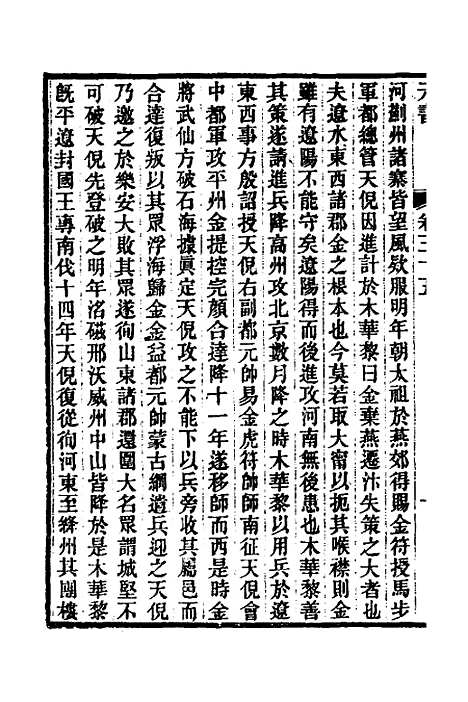 元書　卷三十五　一
河劉州諸寨皆望風欵服明年朝太祖於燕郊得賜金符授馬步
軍都總管天倪因進計於木華黎曰金棄燕遷汴失策之大者也
夫遼水東西諸郡金之根本也今莫若取大甯以扼其喉襟則金
雖有遼陽不能守矣遼陽得而後進攻河南無後患也木華黎善
其策遂請進兵降高州攻北京數月降之時木華黎以用兵於遼
東西事方殷詔授天倪右副都元帥易金虎符帥師南征天倪會
中都軍攻平州金提控完顏合達降十一年遂移師而西是時金
將武仙方破石海據眞定天倪攻之不能下以兵旁收其屬邑而
合達復叛以其眾浮海歸金金益都元帥蒙古綱遣兵迎之天倪
乃邀之於樂安大敗其眾遂徇山東諸郡還圍大名眾謂城堅不
可破天倪先登破之明年洺磁邢沃威州中山皆降於是木華黎
旣平遼封國王專南伐十四年天倪復從徇河東至絳州其團樓